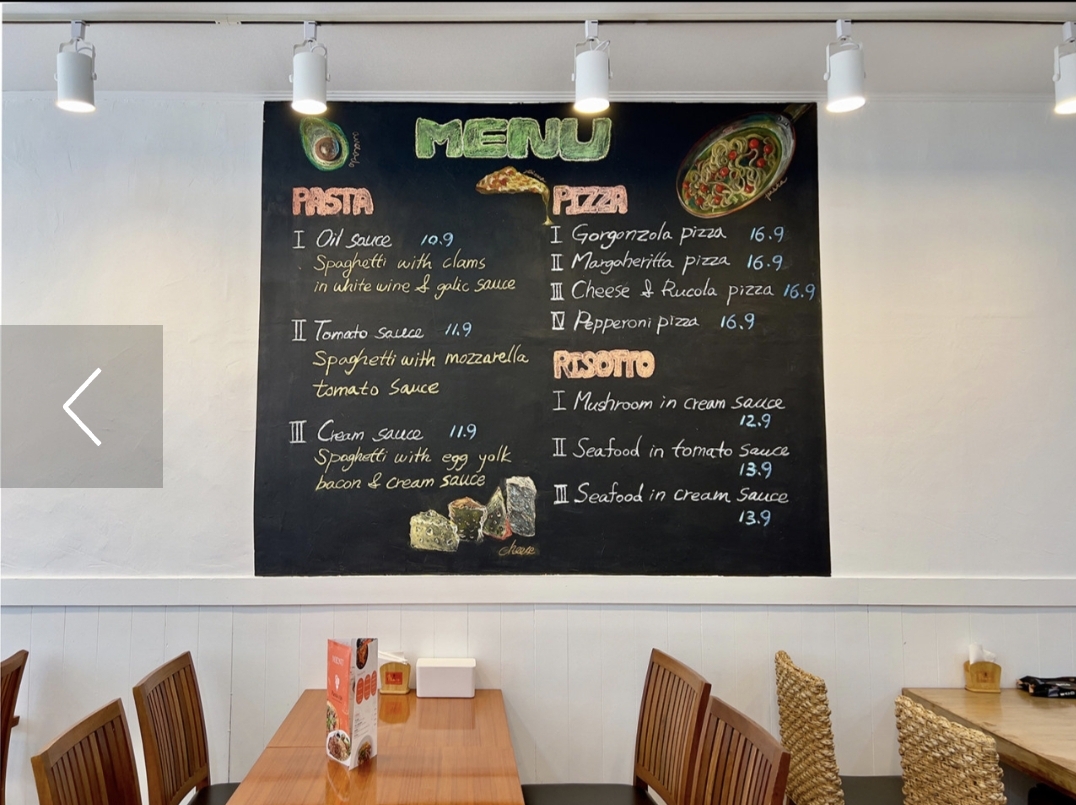 MENU
PASTA
I Oil sauce 10.9
Spaghetti with clams
in white wine & galic sauce
II Tomato sauce 11.9
Spaghetti with mozzarella
tomato sauce
III Cream sauce 11.9
Spaghetti with egg yolk
bacon & cream sauce
cheese
PIZZA
I Gorgonzola pizza 16.9
II Margaheritta pizza 16.9
III Cheese & Rucola pizza 16.9
IV Pepperoni pizza 16.9
RISOTTO
I Mushroom in cream sauce
12.9
II Seafood in tomato sauce
13.9
III Seafood in cream sauce
13.9